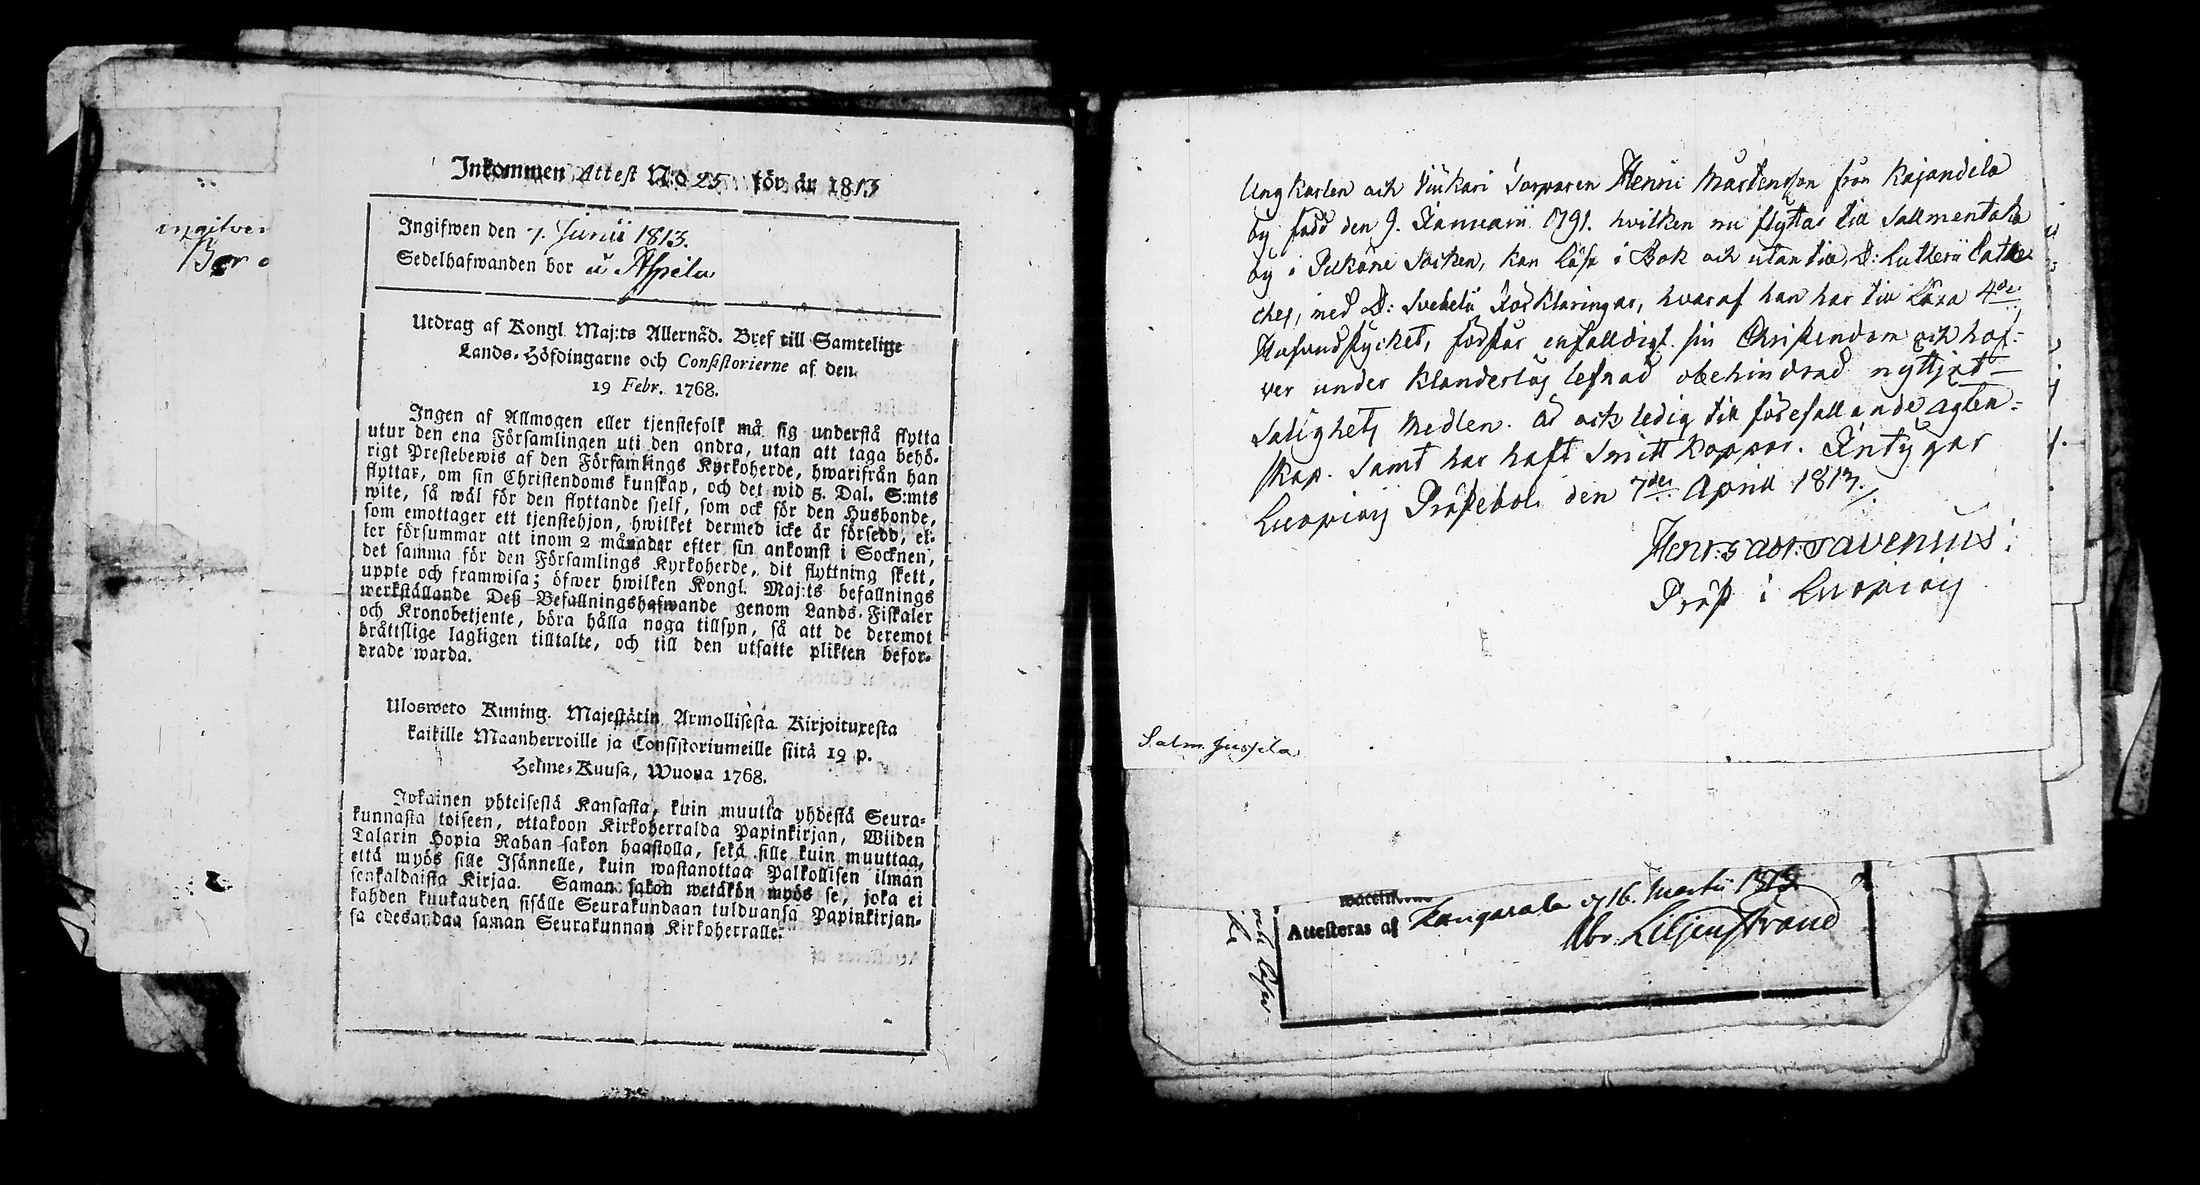 Inkommen Attest N:o 25 för år 1813
Ingifwen den 7. Junii 1813.
Sedelhafwanden bor å Aspila
Utdrag af Kongl. Maj:ts Allernåd. Bref till Samtelige
Lands-Höfdingarne och Consistorierne af den
19 Febr. 1768.
Ingen af Allmogen eller tjenstefolk må sig understå flytta
utur den ena Församlingen uti den andra, utan att taga behö-
rigt Prestebewis af den Församlings Kyrkoherde, hwarifrån han
flyttar, om sin Christendoms kunskap, och det wid 5. Dal. S:mts
wite, så wäl för den flyttande sjelf, som ock för den Husbonde,
som emottager ett tjenstehjon, hwilket dermed icke är försedd, el-
ler försummar att inom 2 månader efter sin ankomst i Socknen,
det samma för den Församlings Kyrkoherde, dit flyttning skett,
uppte och framwisa; öfwer hwilken Kongl. Maj:ts befallnings
werkställande Deß Befallningshafwande genom Lands-Fiskaler
och Kronobetjente, böra hålla noga tillsyn, så att de deremot
bråttslige lagligen tilltalte, och till den utsatte plikten befor-
drade warda.
Ulosweto Kuning. Majestätin Armollisesta Kirjoituxesta
kaikille Maanherroille ja Consistoriumeille siitä 19 p.
Helme-Kuusa, Wuona 1768.
Jokainen yhteisestä Kansasta, kuin muutta yhdestä Seura-
kunnasta toiseen, ottakoon Kirkoherralda Papinkirjan, Wiiden
Talarin Hopia Rahan sakon haastolla, sekä sille kuin muuttaa,
että myös sille Isännelle, kuin wastanottaa Palkollisen ilman
senkaldaista Kirjaa. Saman sakon wetäkön myös se, joka ei
kahden kuukauden sisälle Seurakundaan tulduansa Papinkirjan-
sa edesandaa saman Seurakunnan Kirkoherralle.
Ung karlen och Sonen Henric Mårtensson från Kajandila
by född den 9. Januarii 1791. hvilken nu flyttar till Sallmentaka
by i Pelkäne Socken, kan läsa i Bok och utan till D: Lutherii Cathe-
ches, med D: Svebelii Förklaringar, hvaraf han har till Läxa 4de
Hufvudstycket, förstår enfalldigt sin Christendom och haf-
ver under Klanderlös lefnad obehindrad nyttjat
Salighets Medlen. Är ock ledig till förefallande ägten-
skap. samt har haft Smittkoppor. Intygar
Luopiois Prostebol den 7de April 1813.
Henr: Gabr: Tavenius:
Pröst i Luopiois
Salm. Jussila
Attesteras af Kangasala d 16. Martii 1813
Abr. Liljenstrand